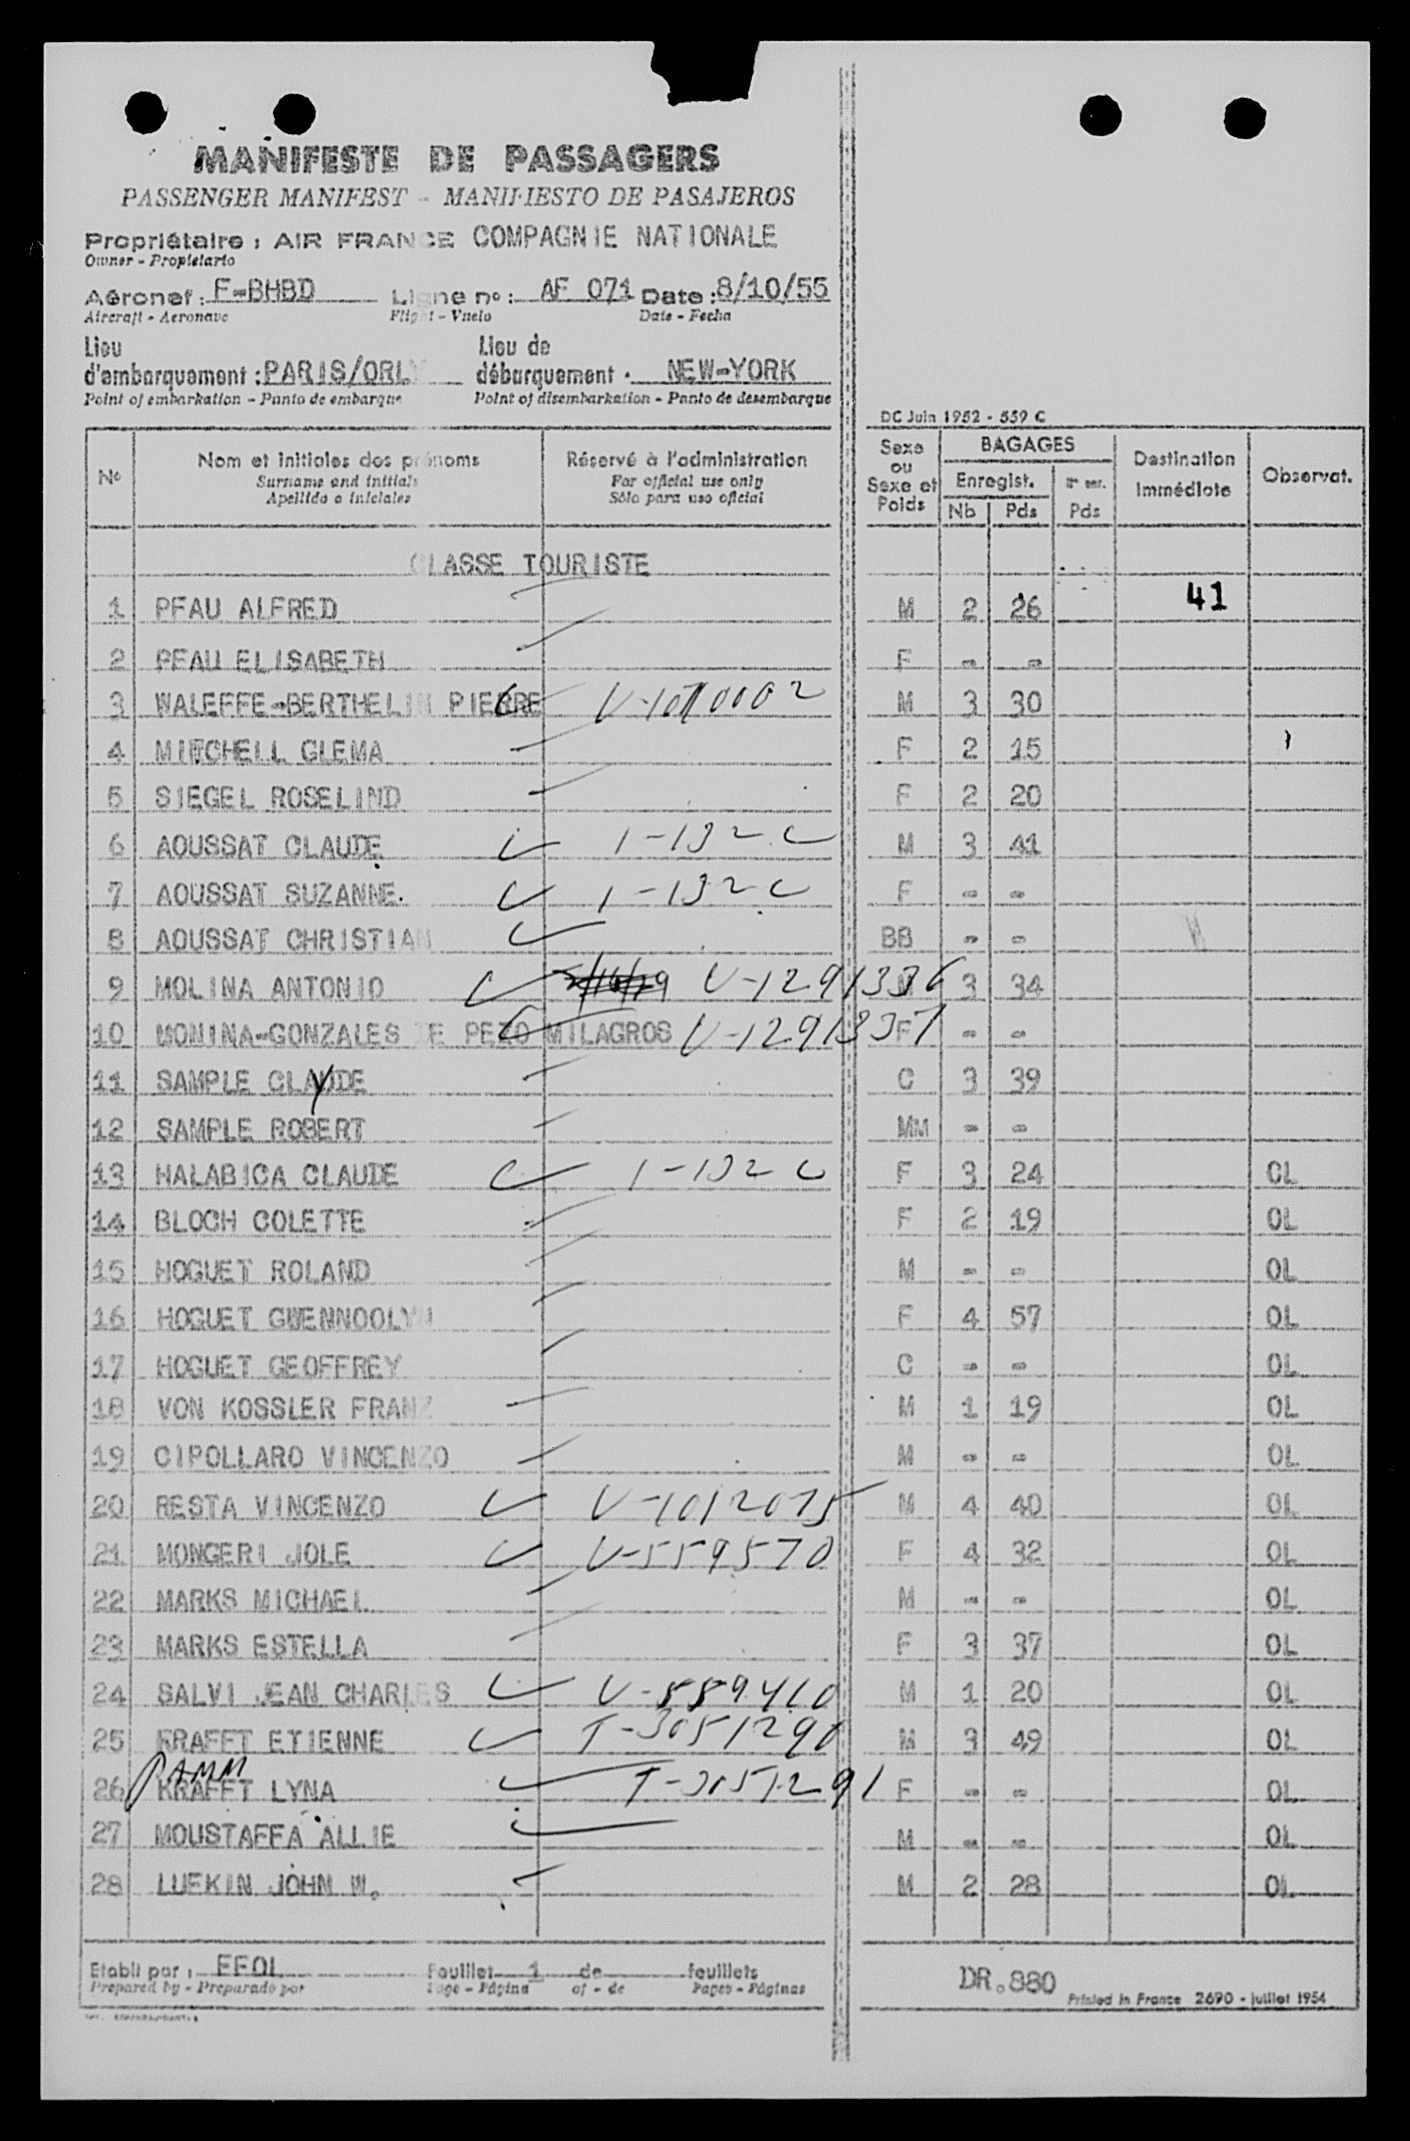 MANIFESTE DE PASSAGERS
PASSENGER MANIFEST - MANIFIESTO DE PASAJEROS
Propriétaire : AIR FRANCE COMPAGNIE NATIONALE
Owner - Propietario
Aéronef : F-BHBD Ligne no : AF 071 Date : 8/10/55
Aircraft - Aeronave Flight - Vuelo Date - Fecha
Lieu d'embarquement : PARIS/ORLY Lieu de débarquement : NEW-YORK
Point of embarkation - Punto de embarque Point of disembarkation - Punto de desembarque
DC Juin 1952 - 559 C
No Nom et initiales des prénoms Réservé à l'administration Sexe ou Sexe et Poids BAGAGES Destination Immédiate Observat.
Surname and initials For official use only Enregist. Pds
Apellido e iniciales Sólo para uso oficial Nb Pds
CLASSE TOURISTE
1 PFAU ALFRED M 2 26 41
2 PFAU ELISABETH F - -
3 WALEFFE-BERTHELIN PIERRE V-1010002 M 3 30
4 MITCHELL CLEMA F 2 15
5 SIEGEL ROSELIND F 2 20
6 AOUSSAT CLAUDE 1-132 C M 3 41
7 AOUSSAT SUZANNE. 1-132 C F - -
8 AOUSSAT CHRISTIAN BB - -
9 MOLINA ANTONIO V-1291336 M 3 34
10 MONINA-GONZALES DE PEZO MILAGROS V-1291337 F - -
11 SAMPLE CLAUDE Y C 3 39
12 SAMPLE ROBERT MM - -
13 HALABICA CLAUDE 1-132 C F 3 24 OL
14 BLOCH COLETTE F 2 19 OL
15 HOGUET ROLAND M - - OL
16 HOGUET GWENNOOLYN F 4 57 OL
17 HOGUET GEOFFREY C - - OL
18 VON KOSSLER FRANZ M 1 19 OL
19 CIPOLLARO VINCENZO M - - OL
20 RESTA VINCENZO V-1012075 M 4 40 OL
21 MONGERI JOLE V-559570 F 4 32 OL
22 MARKS MICHAEL M - - OL
23 MARKS ESTELLA F 3 37 OL
24 SALVI JEAN CHARLES V-559410 M 1 20 OL
25 KRAFFT ETIENNE T-3051290 M 3 49 OL
DAMM
26 KRAFFT LYNA T-3051291 F - - OL
27 MOUSTAFFA ALLIE M - - OL
28 LUFKIN JOHN W. M 2 28 OL
Etabli par : FFOL Feuillet 1 de feuillets DR.880
Prepared by - Preparado por Page - Página of - de Pages - Páginas Printed in France 2690 - juillet 1954